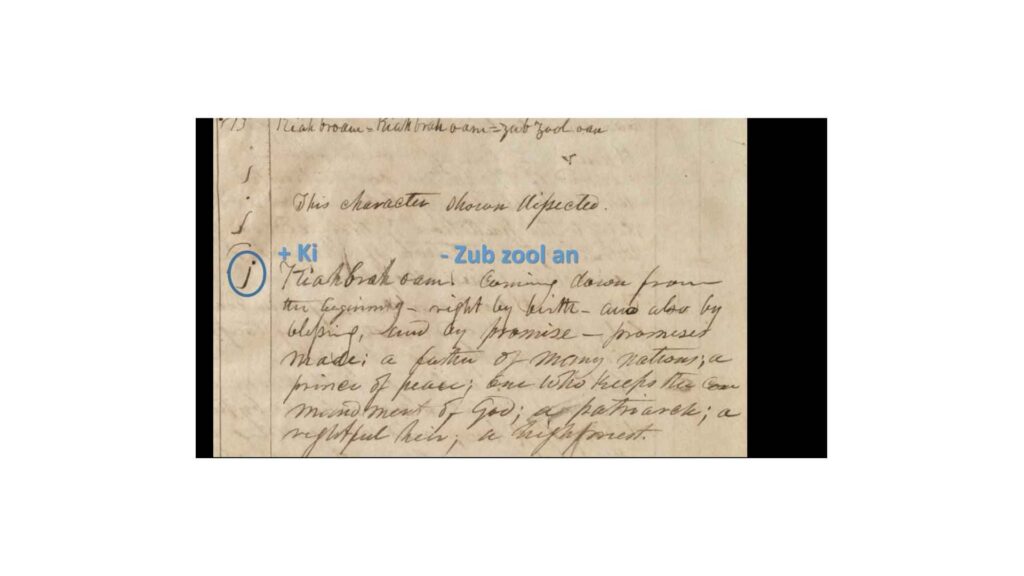 Kiahbroam = Kiahbrah oam = zub zool oan
This character shown disected.
+ Ki - Zub zool an
j Kiahbrah oam. Coming down from
the beginning – right by birth – and also by
blessing, and by promise – promises
made; a father of many nations; a
prince of peace; one who keeps the com
mandment of God; a patriarch; a
rightful heir; a highpriest.